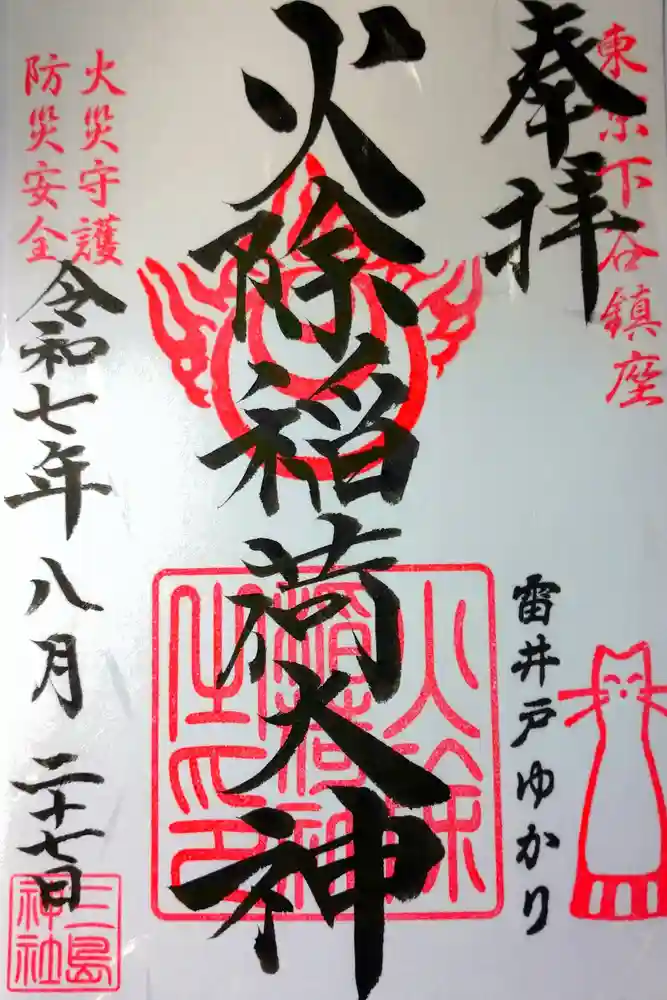 東京下谷鎮座
奉拝
雷井戸ゆかり
火除稲荷大神
火除
稲荷神
之印
火災守護
防災安全
令和七年八月二十七日
三島
神社